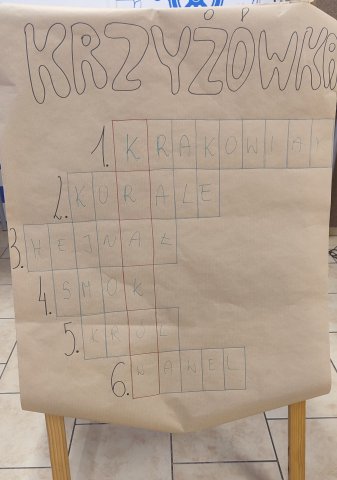 KRZYŻÓWKA
1. KRAKOWIAK
2. KORALE
3. HEJNAŁ
4. SMOK
5. KRÓL
6. WAWEL